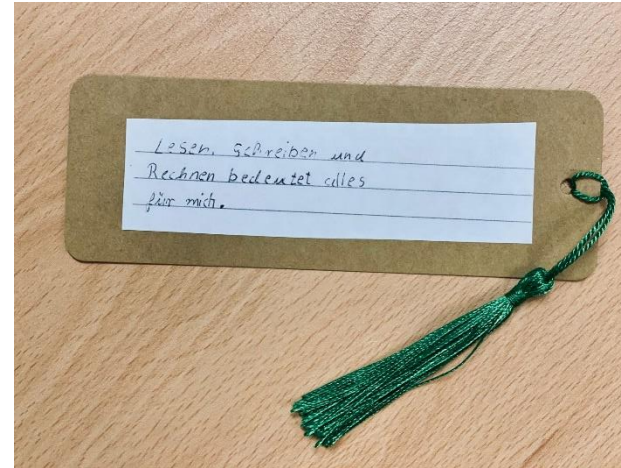 Lesen, schreiben und
Rechnen bedeutet alles
für mich.